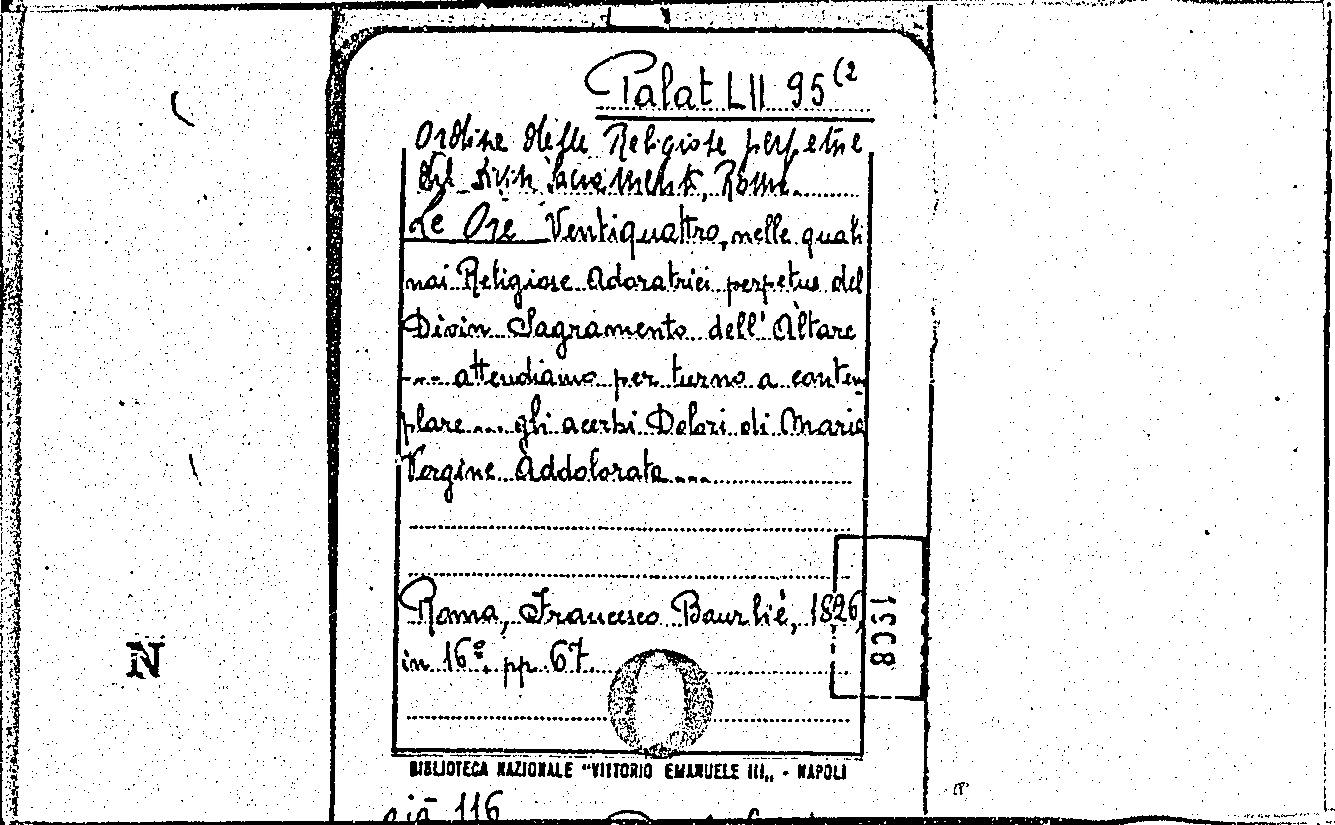 Palat LII 95 (2
Ordine delle Religiose perpetue
del Divin Sacramento, Roma.
Le Ore Ventiquattro, nelle quali
noi Religiose Adoratrici perpetue del
Divin Sagramento dell' Altare
.... attendiamo per turno a contem
plare .... gli acerbi Dolori di Maria
Vergine Addolorata ....
Roma, Francesco Bourlié, 1826,
in 16º. pp. 67.
ISCB
N
BIBLIOTECA NAZIONALE "VITTORIO EMANUELE III„ - NAPOLI
già 116